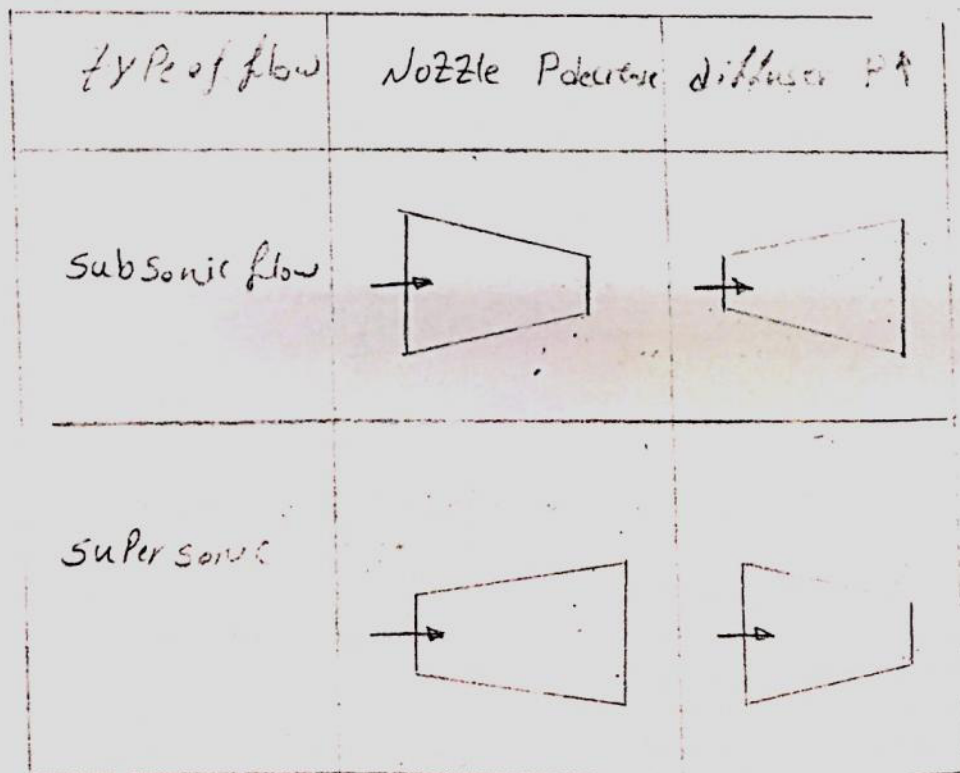 type of flow
Nozzle Pdecrease
diffuser P↑
subsonic flow
supersonic